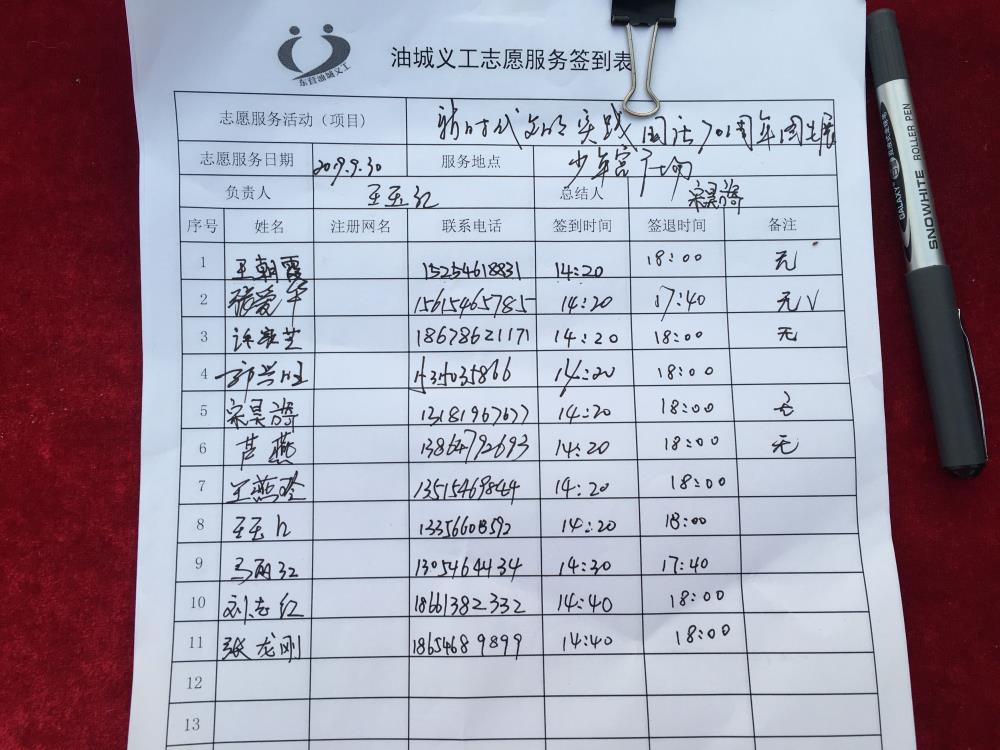 东营油城义工
油城义工志愿服务签到表
志愿服务活动（项目） 新时代文明实践 国庆70周年图片展
志愿服务日期 2019.9.30 服务地点 少年宫广场
负责人 王玉红 总结人
序号 姓名 注册网名 联系电话 签到时间 签退时间 备注
1 王朝霞 15254618831 14:20 18:00 无
2 张爱华 15615465785 14:20 17:40 无 √
3 许家芝 18678621171 14:20 18:00 无
4 郭兴旺 14:20 18:00
5 13181967677 14:20 18:00 无
6 芦燕 13864792693 14:20 18:00 无
7 王燕玲 13515469844 14:20 18:00
8 14:20 18:00
9 马丽红 13054644434 14:30 17:40
10 刘志红 18661382332 14:40 18:00
11 张龙刚 18654689899 14:40 18:00
12
13
SNOWHITE ROLLER PEN